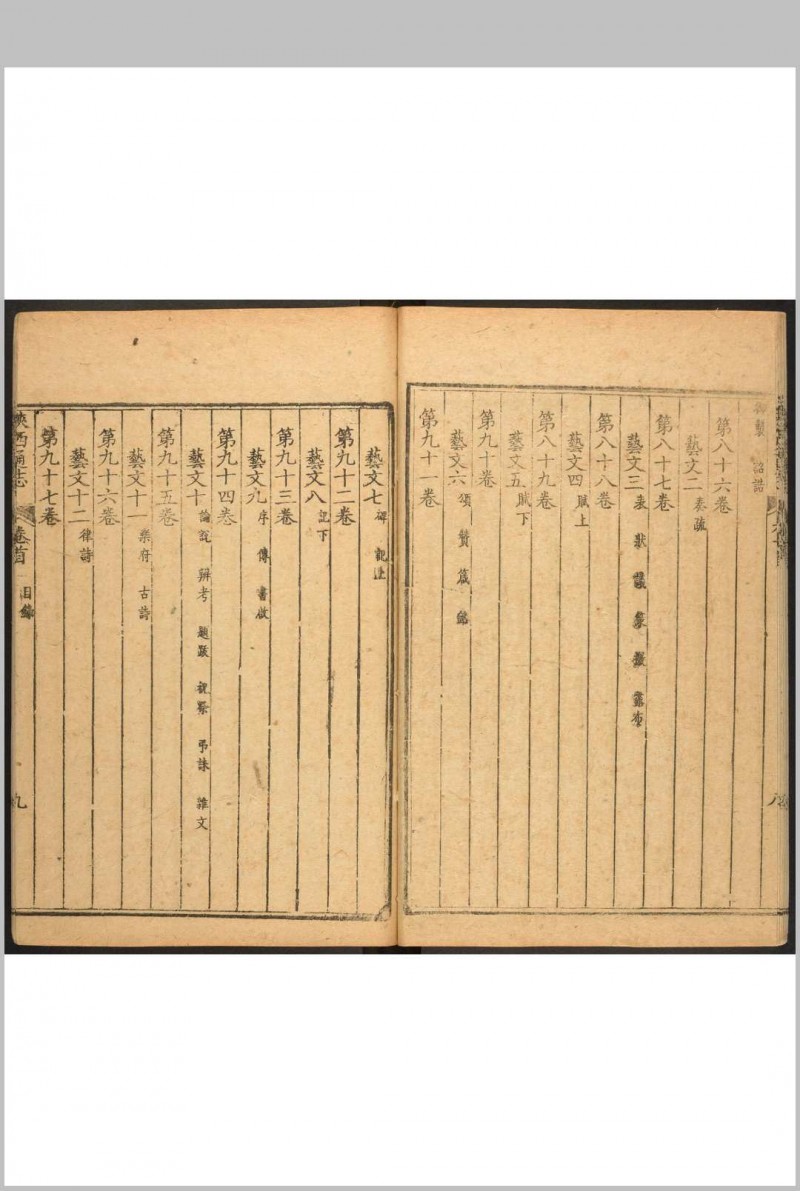 詔誥
第八十六卷
藝文二 奏疏
第八十七卷
藝文三 表 狀 議 策 檄 露布
第八十八卷
藝文四 賦上
第八十九卷
藝文五 賦下
第九十卷
藝文六 頌 贊 箴 銘
第九十一卷
藝文七 碑 記上
第九十二卷
藝文八 記下
第九十三卷
藝文九 序 傳 書啟
第九十四卷
藝文十 論說 辨考 題跋 祝祭 弔誄 雜文
第九十五卷
藝文十一 樂府 古詩
第九十六卷
藝文十二 律詩
第九十七卷
陜西通志 卷首 目錄 九